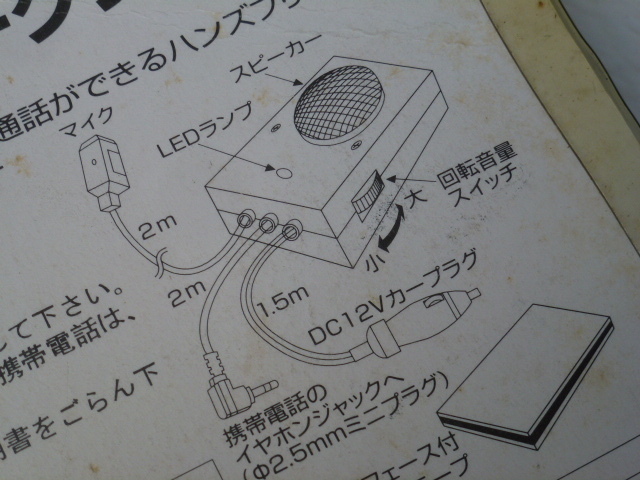 通話ができるハンズフ
スピーカー
マイク
LEDランプ
回転音量
スイッチ
大
小
2m
2m
1.5m
DC12Vカープラグ
して下さい。
携帯電話は、
書をごらん下
携帯電話の
イヤホンジャックへ
(Φ2.5mmミニプラグ)
フェース付
ープ